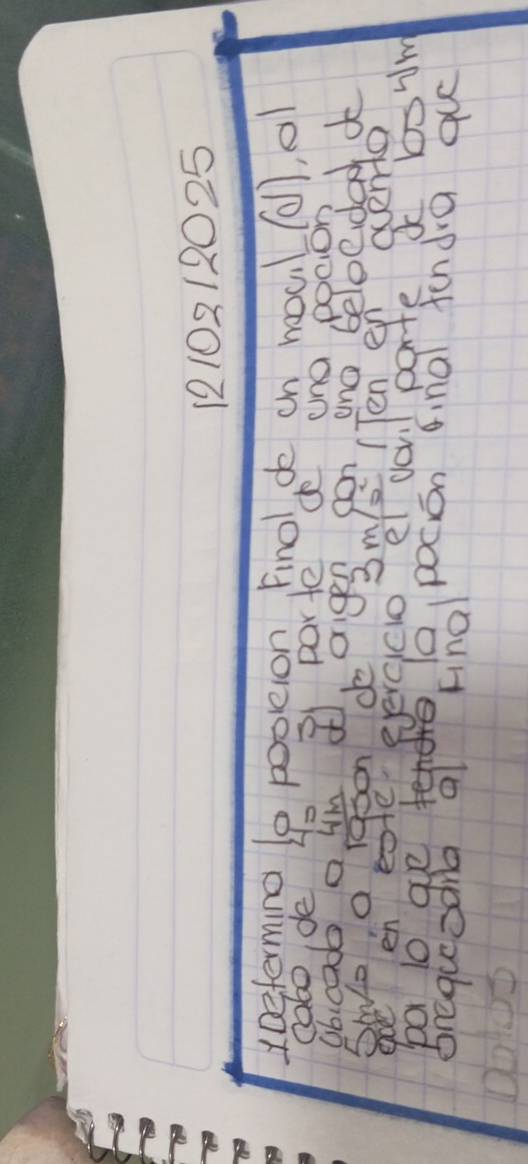 12/03/2025
1 Determina la posicion Final de un movil (d), al
cabo de 4s si parte de una pocion
Ubicado a 4m del origen con una belocidad de
5m/s a rason de 3m/s² (Ten en cuenta
que en este. ejercicio el varil parte de los 4m
por lo que tendra la poción final tendra que
al Final
Datos